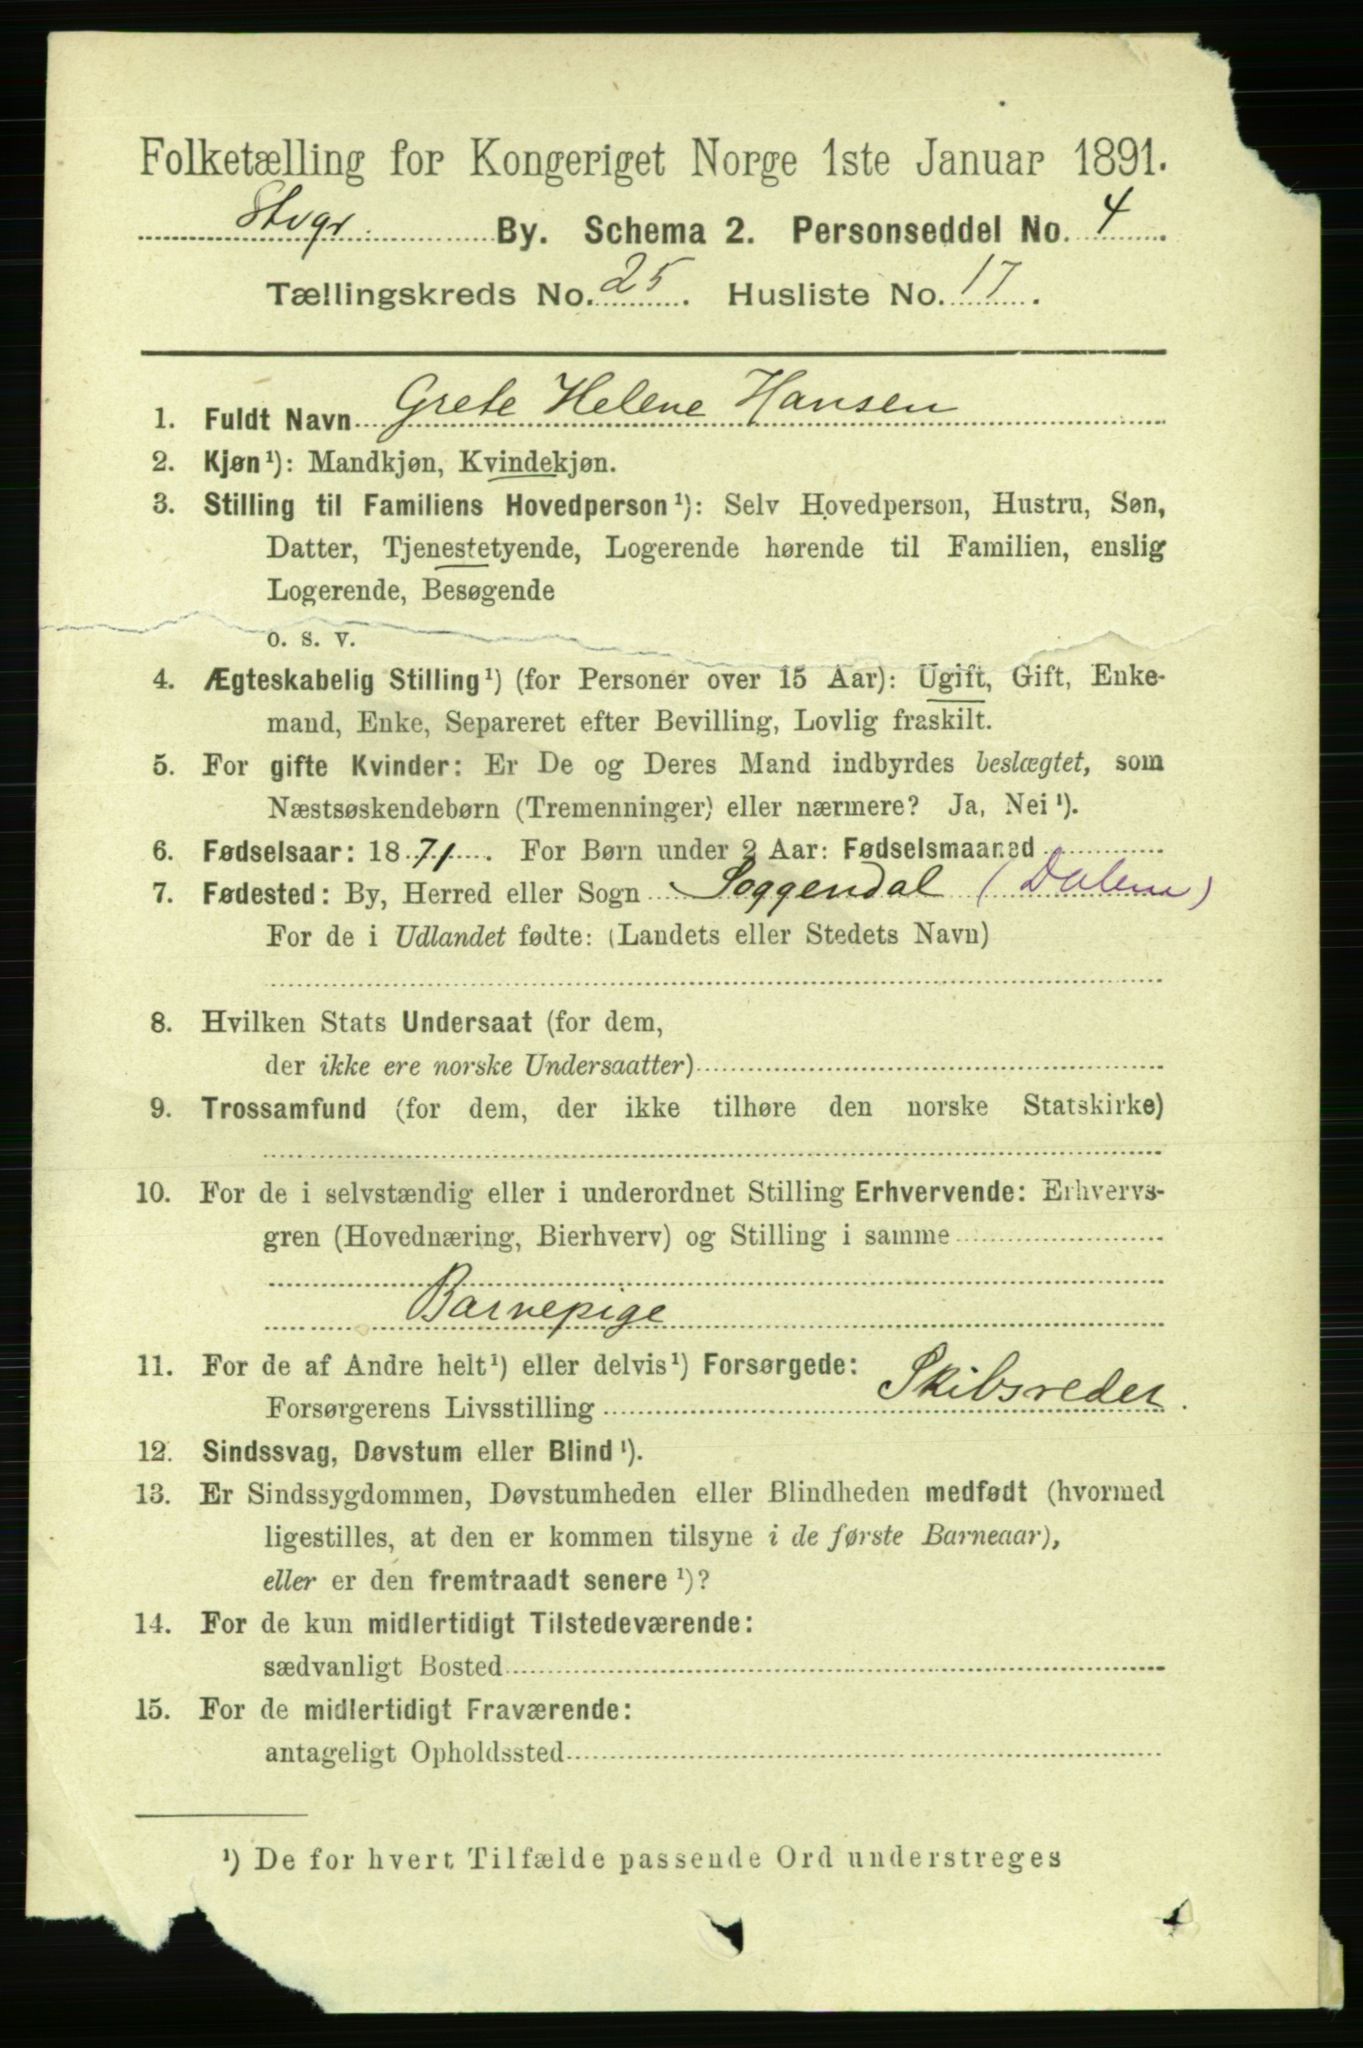 Folketælling for Kongeriget Norge 1ste Januar 1891.
Stvgr. By. Schema 2. Personseddel No. 4
Tællingskreds No. 25. Husliste No. 17.
1. Fuldt Navn Grete Helene Hansen
2. Kjøn¹): Mandkjøn, Kvindekjøn.
3. Stilling til Familiens Hovedperson¹): Selv Hovedperson, Hustru, Søn,
Datter, Tjenestetyende, Logerende hørende til Familien, enslig
Logerende, Besøgende
o. s. v.
4. Ægteskabelig Stilling¹) (for Personer over 15 Aar): Ugift, Gift, Enke-
mand, Enke, Separeret efter Bevilling, Lovlig fraskilt.
5. For gifte Kvinder: Er De og Deres Mand indbyrdes beslægtet, som
Næstsøskendebørn (Tremenninger) eller nærmere? Ja, Nei¹).
6. Fødselsaar: 1871. For Børn under 2 Aar: Fødselsmaaned
7. Fødested: By, Herred eller Sogn Soggendal (Dalene)
For de i Udlandet fødte: (Landets eller Stedets Navn)
8. Hvilken Stats Undersaat (for dem,
der ikke ere norske Undersaatter)
9. Trossamfund (for dem, der ikke tilhøre den norske Statskirke)
10. For de i selvstændig eller i underordnet Stilling Erhvervende: Erhvervs-
gren (Hovednæring, Bierhverv) og Stilling i samme
Barnepige
11. For de af Andre helt¹) eller delvis¹) Forsørgede:
Forsørgerens Livsstilling Skibsreder.
12. Sindssvag, Døvstum eller Blind¹).
13. Er Sindssygdommen, Døvstumheden eller Blindheden medfødt (hvormed
ligestilles, at den er kommen tilsyne i de første Barneaar),
eller er den fremtraadt senere¹)?
14. For de kun midlertidigt Tilstedeværende:
sædvanligt Bosted
15. For de midlertidigt Fraværende:
antageligt Opholdssted
¹) De for hvert Tilfælde passende Ord understreges